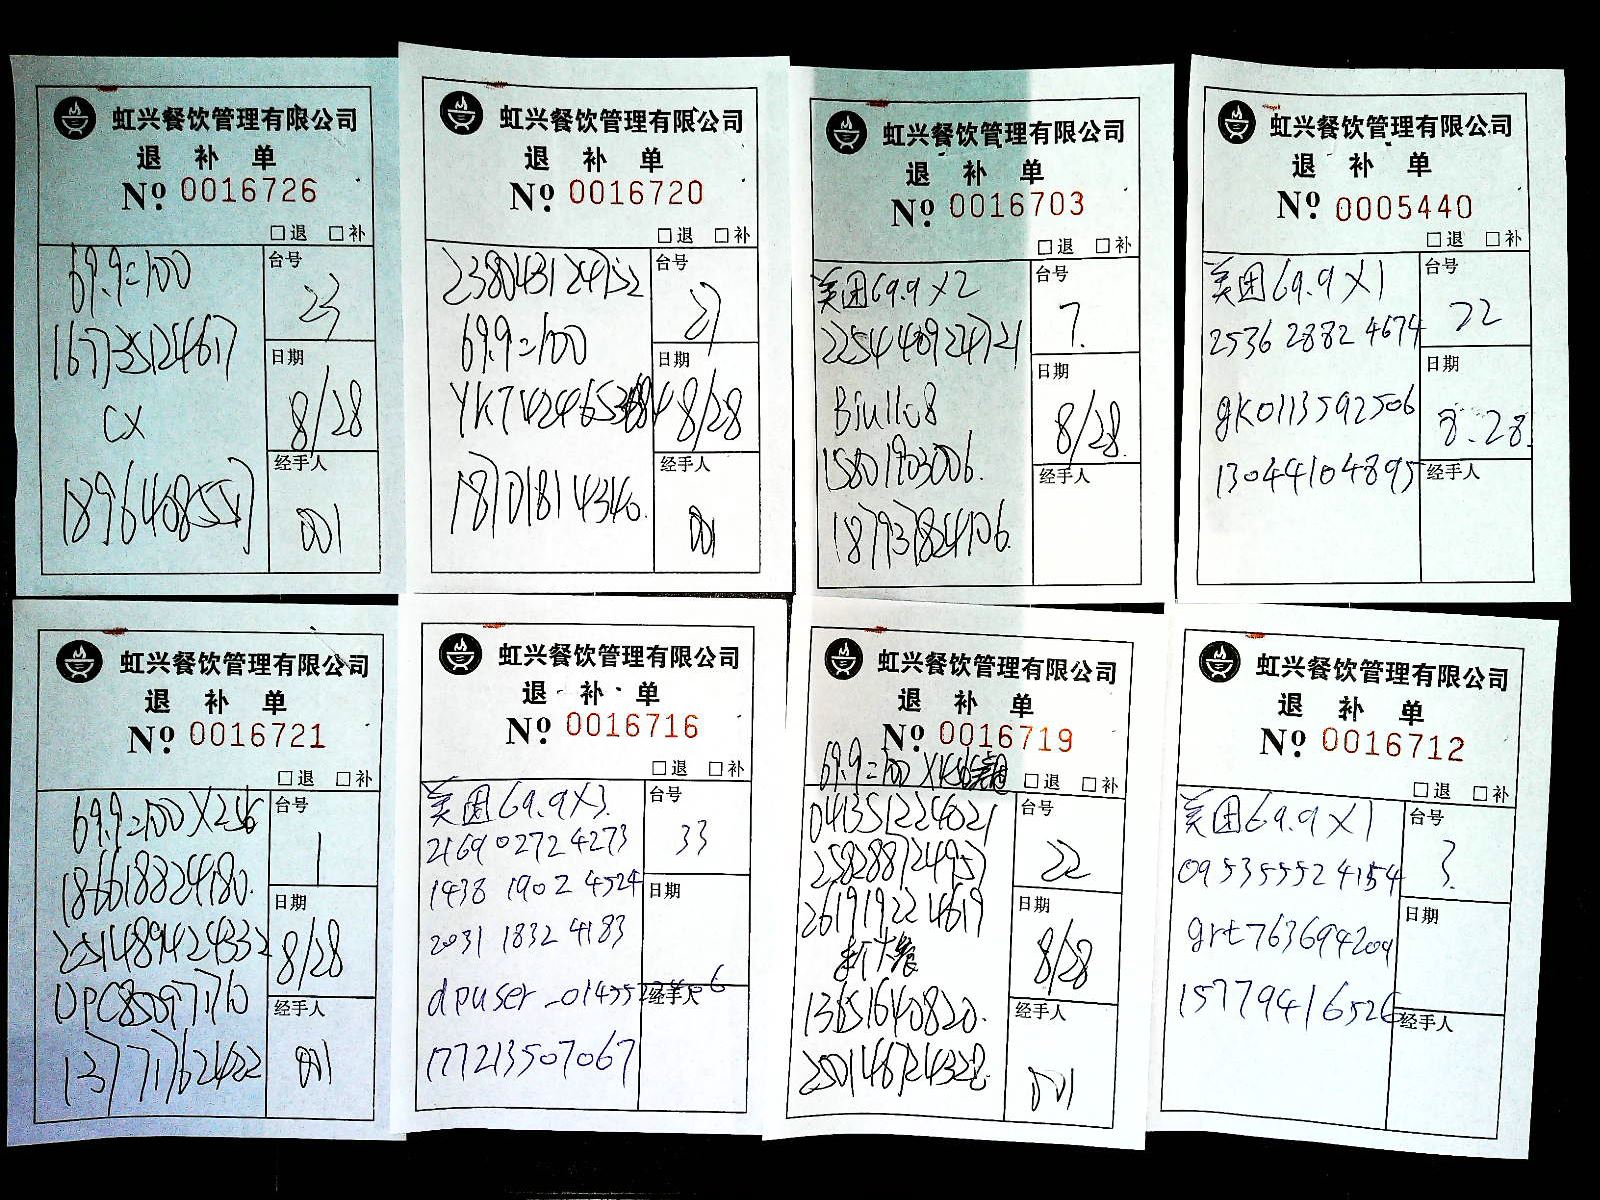 虹兴餐饮管理有限公司
退 补 单
№ 0016726
□退 □补
69.9=100
台号
23
167735124617
日期
8/28
CX
经手人
18964085517
001
虹兴餐饮管理有限公司
退 补 单
№ 0016720
□退 □补
238043124752
台号
27
69.9=100
日期
8/28
经手人
18701814340
001
虹兴餐饮管理有限公司
退 补 单
№ 0016703
□退 □补
美团69.9X2
台号
7.
225448924721
日期
8/28
Biu1108
15801903006.
经手人
虹兴餐饮管理有限公司
退 补 单
№ 0005440
□退 □补
美团69.9X1
台号
22
2536 2882 4674
日期
8.28.
gK0113592506
13044104895
经手人
虹兴餐饮管理有限公司
退 补 单
№ 0016721
□退 □补
69.9=100X256
台号
1
186618824180.
日期
8/28
251489424332
DPC850971710
经手人
13771762422
001
虹兴餐饮管理有限公司
退 补 单
№ 0016716
□退 □补
美团69.9X3.
台号
33
216902724273
1438 1902 4524
日期
2031 1832 4183
经手人
177213507067
虹兴餐饮管理有限公司
退 补 单
№ 0016719
69.9=100
□退 □补
041351224021
台号
22
258288724957
261919224619
日期
8/28
新大餐
13651640820.
经手人
250146724328
001
虹兴餐饮管理有限公司
退 补 单
№ 0016712
□退 □补
美团69.9X1
台号
3.
095355524154
日期
grt763694209
15779416526
经手人